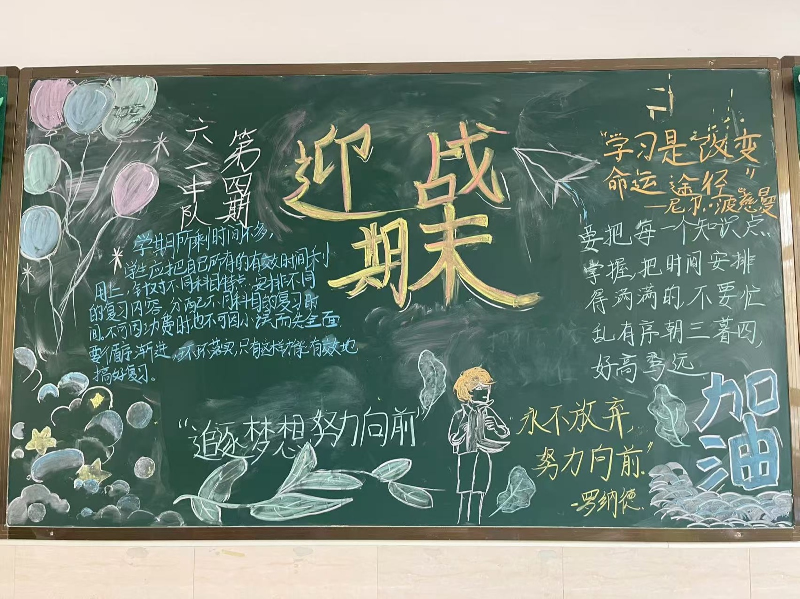 迎战
期末
六一中队
第四期
学期所剩时间不多，
学生应把自己所有的有效时间利
用上，针对不同科目特点，安排不同
的复习内容，分配不同科目的复习时
间，不可因功费时也不可因小失而失全面
要循序渐进，环环落实，只有这样才能有效地
搞好复习。
"追逐梦想努力向前"
"学习是改变
命运途径"
—尼尔·波慈曼
要把每一个知识点
掌握，把时间安排
得满满的，不要忙
乱有序朝三暮四，
好高骛远
永不放弃
努力向前"
-罗纳德
加油